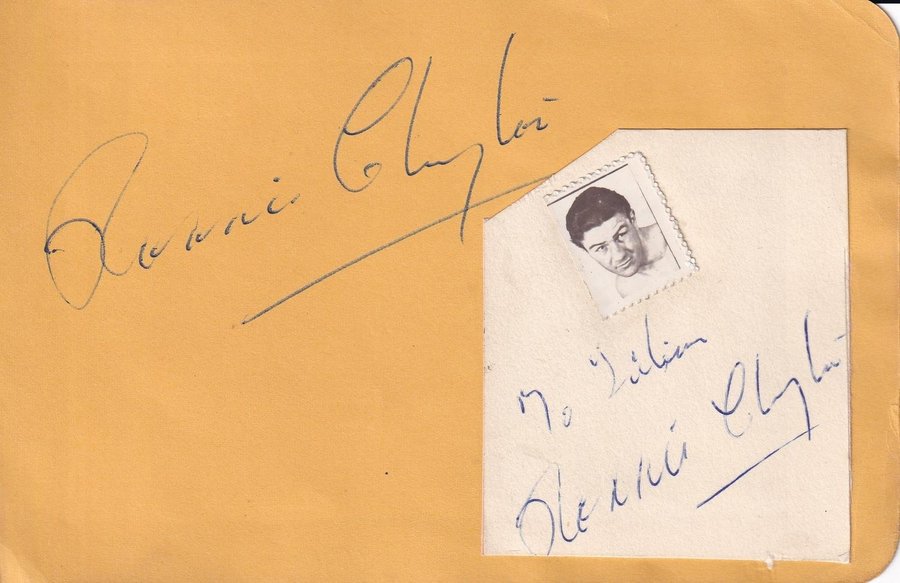 Ronnie Clayton
To Lilian
Ronnie Clayton